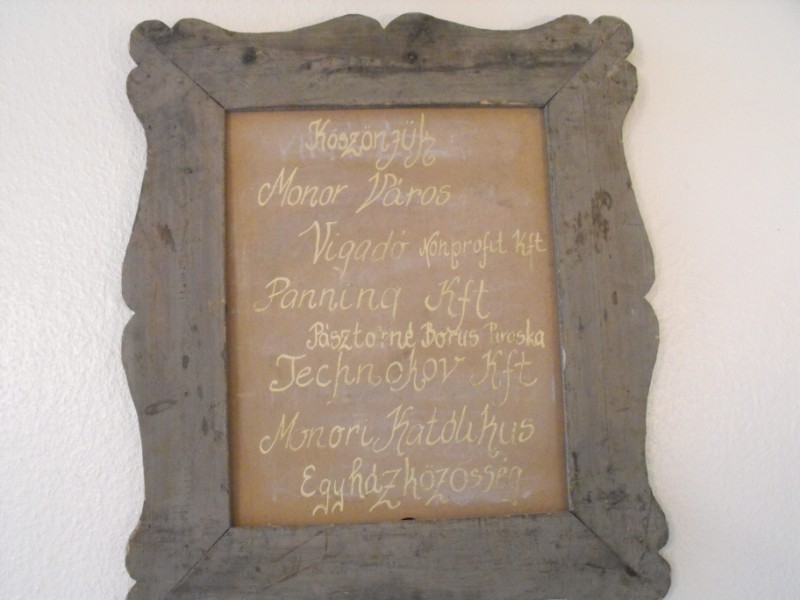 Köszönjük
Monor Város
Vigadó Nonprofit Kft
Panning Kft
Pásztorné Borus Piroska
Technokov Kft
Monori Katólikus
Egyházközösség